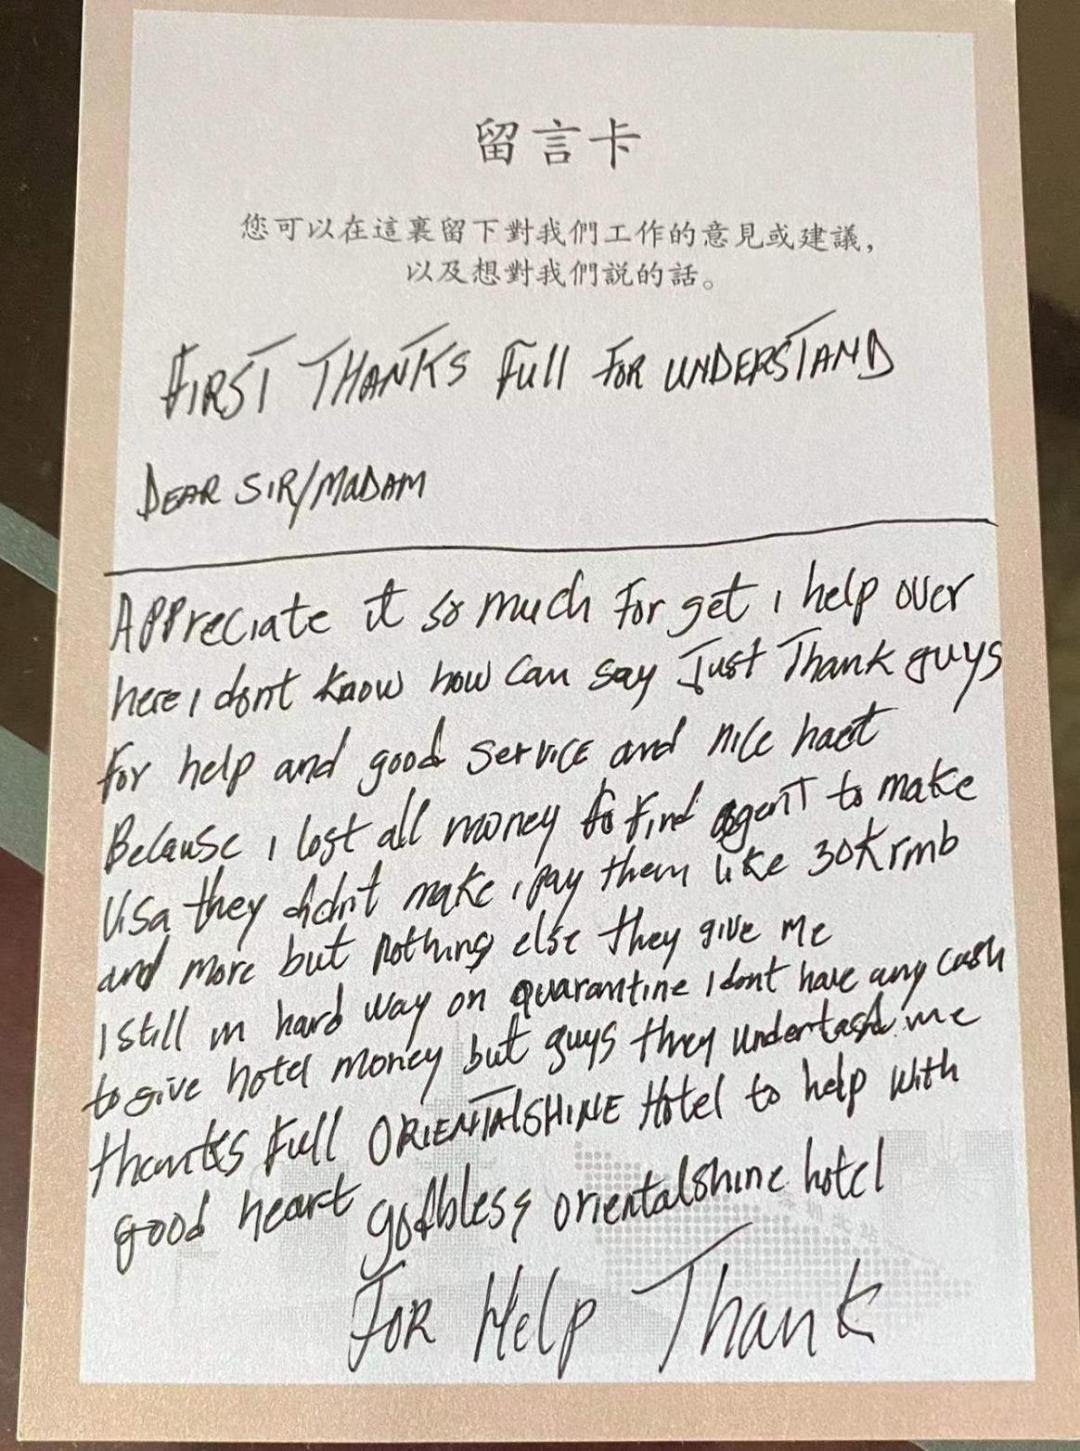 留言卡
您可以在這裏留下對我們工作的意見或建議，
以及想對我們説的話。
FIRST THANKS Full FOR UNDERSTAND
DEAR SIR/MaDAM
APPreciate it so much For get i help over
here i dont know how can say Just Thank guys
For help and good service and nice haet
Because i lost all money to Find agenT to make
Visa they didnt make i pay them like 30K rmb
and more but nothing else they give me
I still in hard way on quarantine I dont have any cash
to give hotel money but guys they me
thanks Full ORIENTALSHINE Hotel to help with
good heart godbless orientalshine hotel
FOR Help Thank